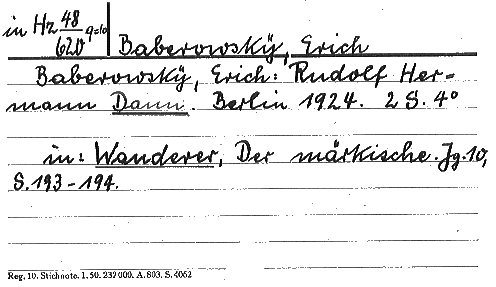 in Hz 48/620 q=10
Baberowskÿ, Erich
Baberowskÿ, Erich: Rudolf Her-
mann Dann. Berlin 1924. 2 S. 4°
in: Wanderer, Der märkische. Jg. 10,
S. 193-194.
Reg. 10. Stichnote. 1. 50. 232000. A. 803. S. 4062